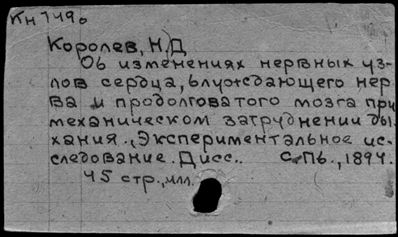 Кн 7490
Королев, Н.Д
Об изменениях нервных уз-
лов сердца, блуждающего нер
ва и продолговатого мозга при
механическом затруднении ды
хания., Экспериментальное ис-
следование. Дисс.. С.Пь., 1894.
45 стр., илл.